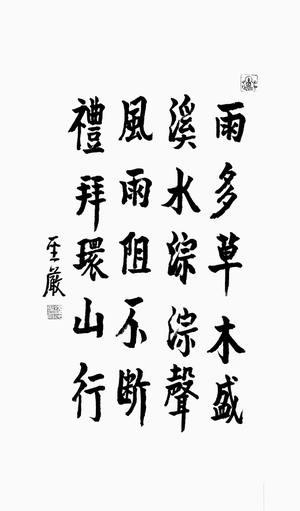 雨多草木盛
溪水淙淙聲
風雨阻不斷
禮拜環山行
聖嚴